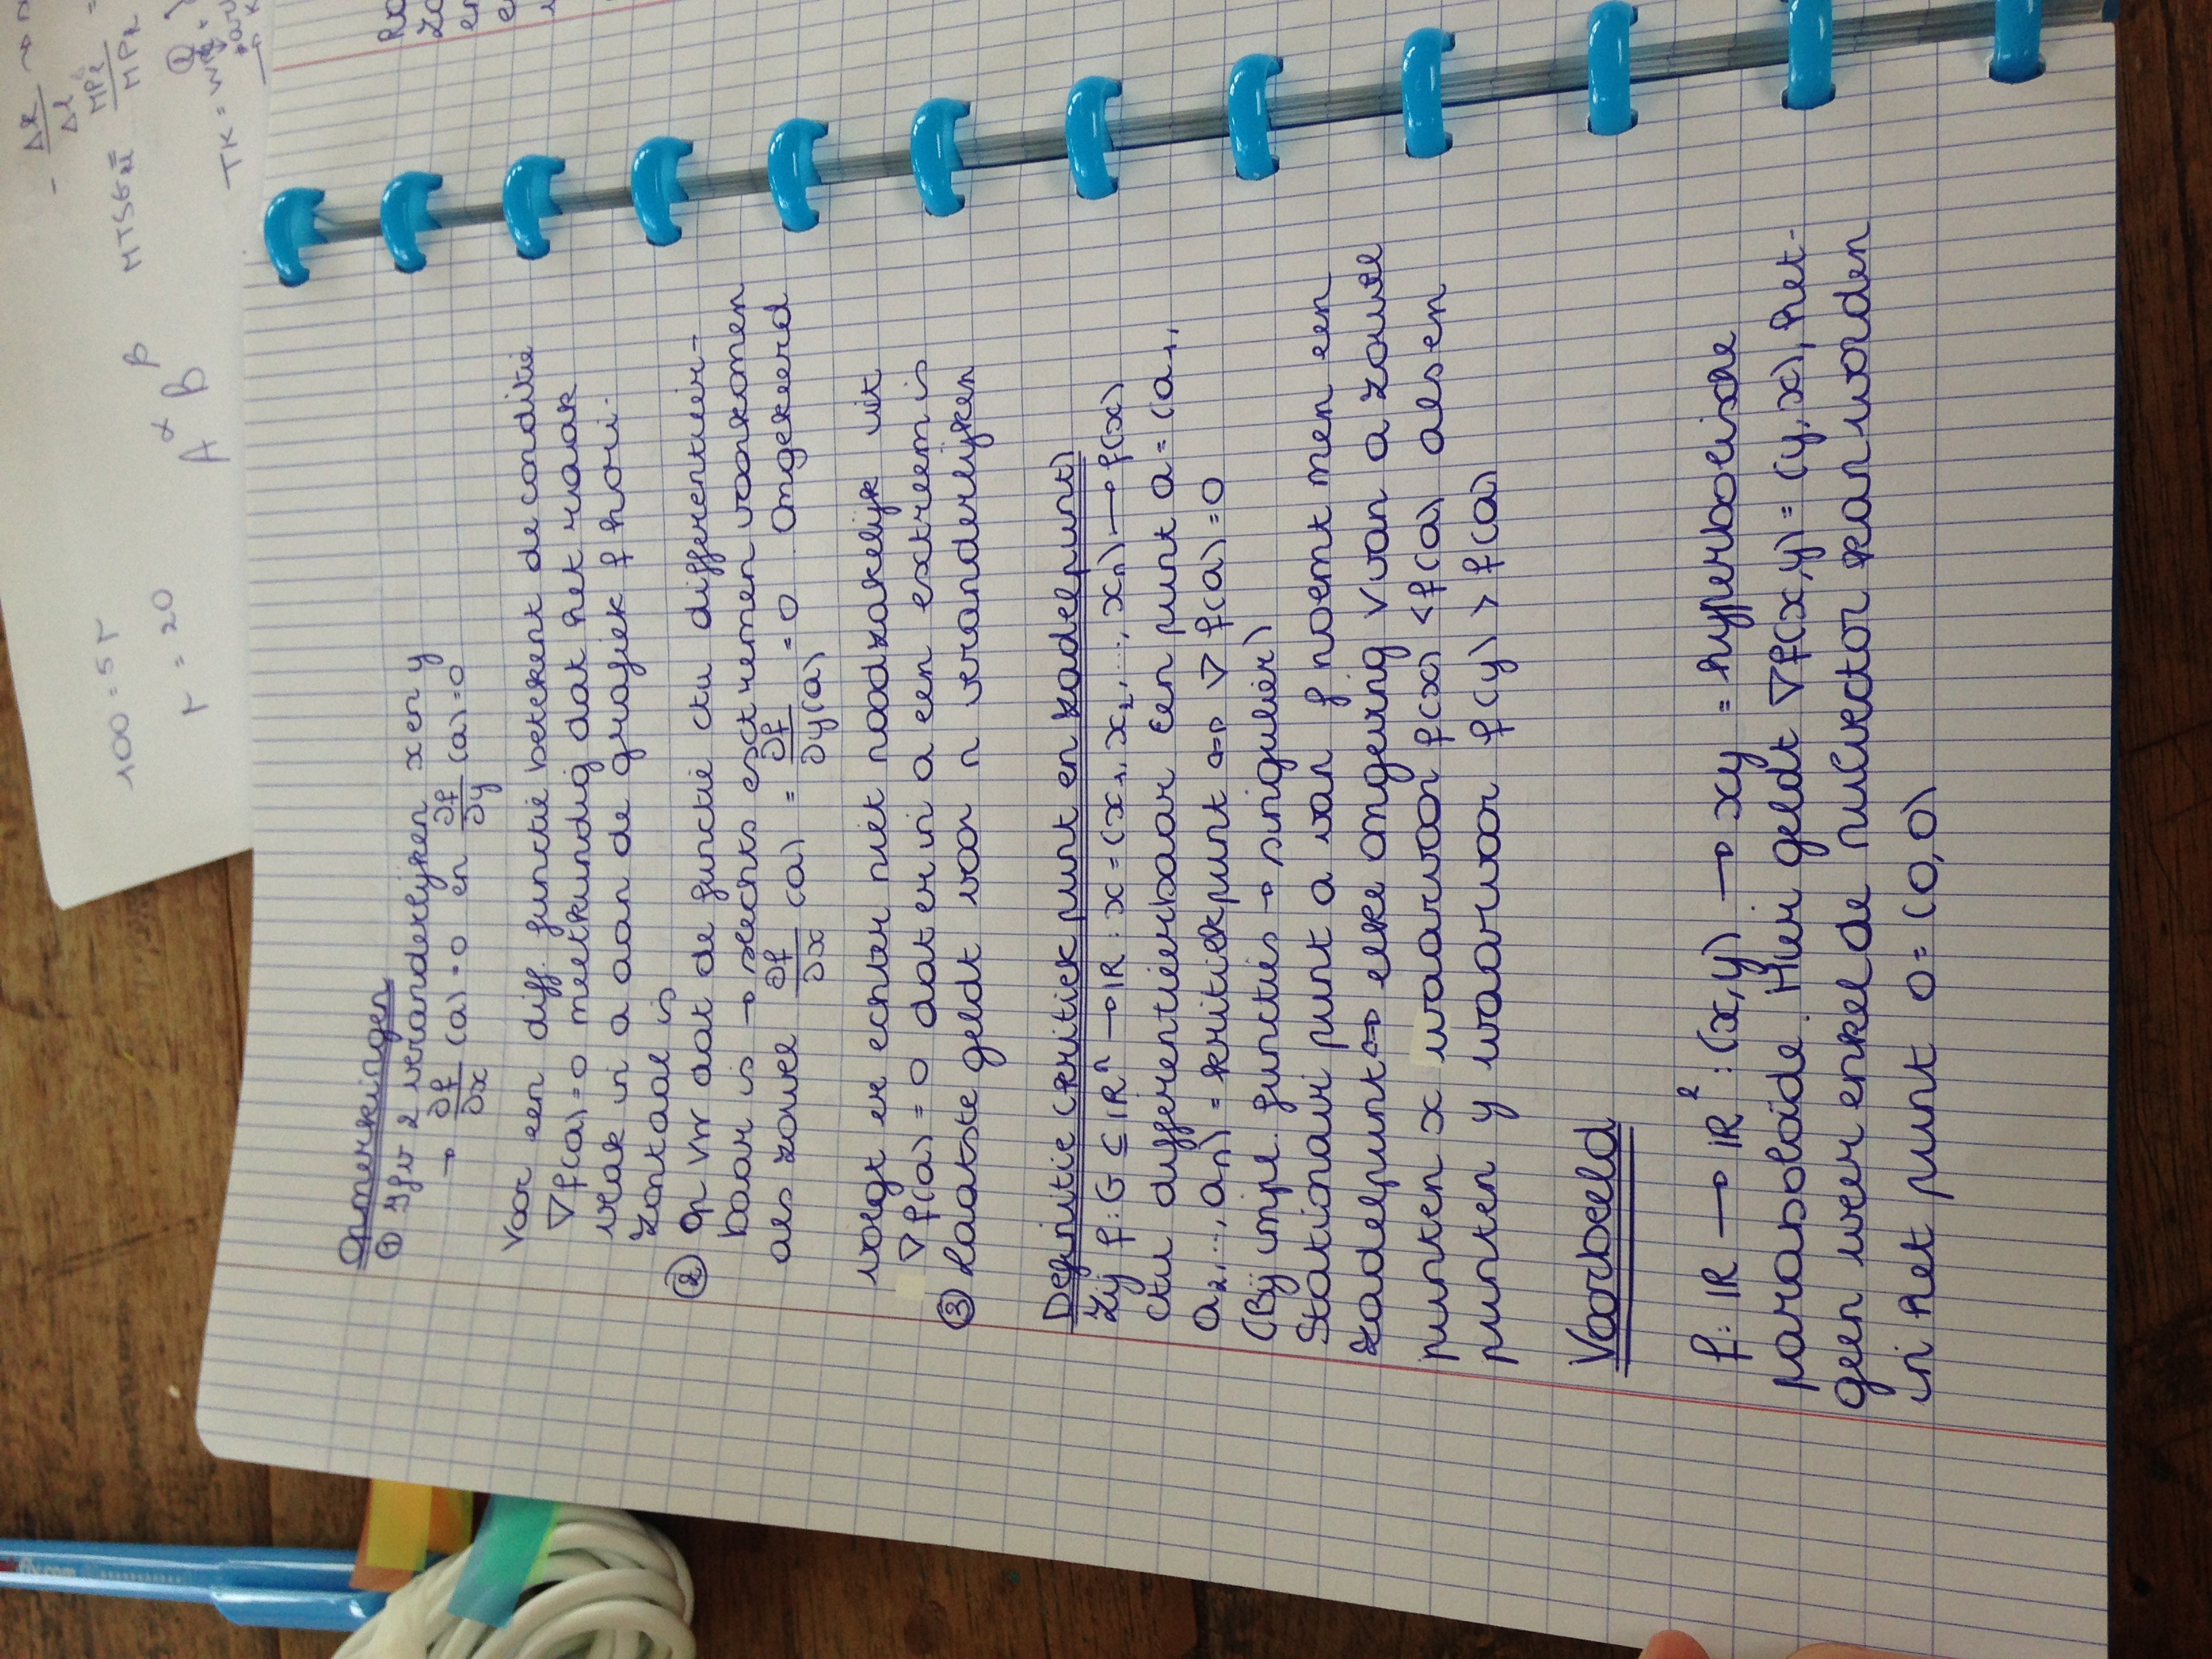 Opmerkingen
① Igv 2 veranderlijken x en y
→ ∂f/∂x (a) = 0 en ∂f/∂y (a) = 0
Voor een diff. functie betekent de conditie
∇f(a) = 0 meetkundig dat het raak
vlak in a aan de grafiek f hori-
zontaal is
② Op vw dat de functie ctu differentieer-
baar is → slechts extremen voorkomen
als zowel ∂f/∂x (a) = ∂f/∂y(a) = 0 Omgekeerd
volgt er echter niet noodzakelijk uit
∇f(a) = 0 dat er in a een extreem is
③ Laatste geldt voor n veranderlijken
Definitie (kritiek punt en zadelpunt)
Zij f: G ⊆ IRⁿ → IR : x = (x₁, x₂, ..., xₙ) → f(x)
ctu differentieerbaar Een punt a = (a₁,
a₂, ..., aₙ) = kritiekpunt ⇔ ∇ f(a) = 0
(Bij impl. functies → singulier)
Stationair punt a van f noemt men een
zadelpunt ⇔ elke omgeving V van a zowel
punten x waarvoor f(x) < f(a) als en
punten y waarvoor f(y) > f(a)
Voorbeeld
f: IR → IR² : (x,y) → xy = hyperbolische
paraboloïde. Hier geldt ∇f(x,y) = (y,x), het-
geen weer enkel de nulvector kan worden
in het punt 0 = (0,0)
100 = 5r
r = 20
A^α B^β
MP
TK = w